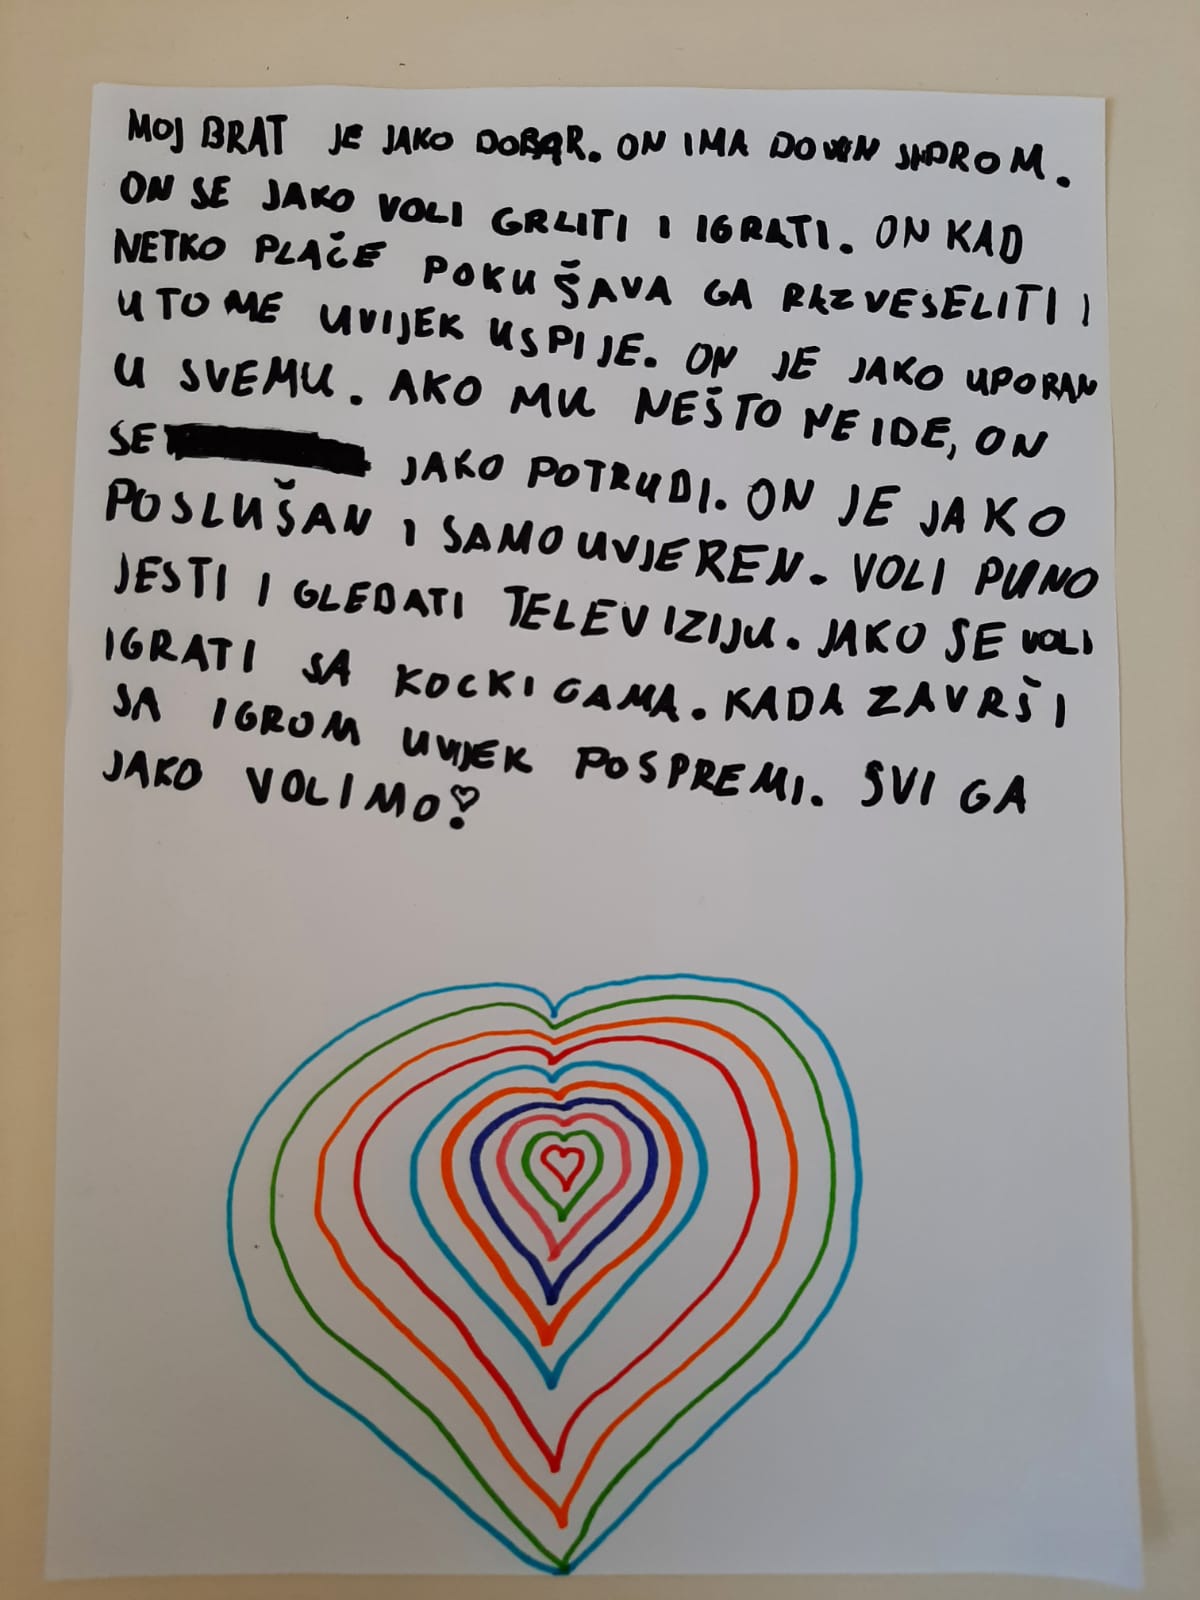 MOJ BRAT JE JAKO DOBAR. ON IMA DOWN
ON SE JAKO VOLI GRLITI I IGRATI. ON KAD
NETKO PLAČE POKUŠAVA GA RAZVESELITI I
U TOME UVIJEK USPIJE. ON JE JAKO UPORAN
U SVEMU. AKO MU NEŠTO NE IDE, ON
SE JAKO POTRUDI. ON JE JAKO
POSLUŠAN I SAMOUVJEREN. VOLI PUNO
JESTI I GLEDATI TELEVIZIJU. JAKO SE VOLI
IGRATI SA KOCKIGAMA. KADA ZAVRŠI
SA IGROM UVIJEK POSPREMI. SVI GA
JAKO VOLIMO!